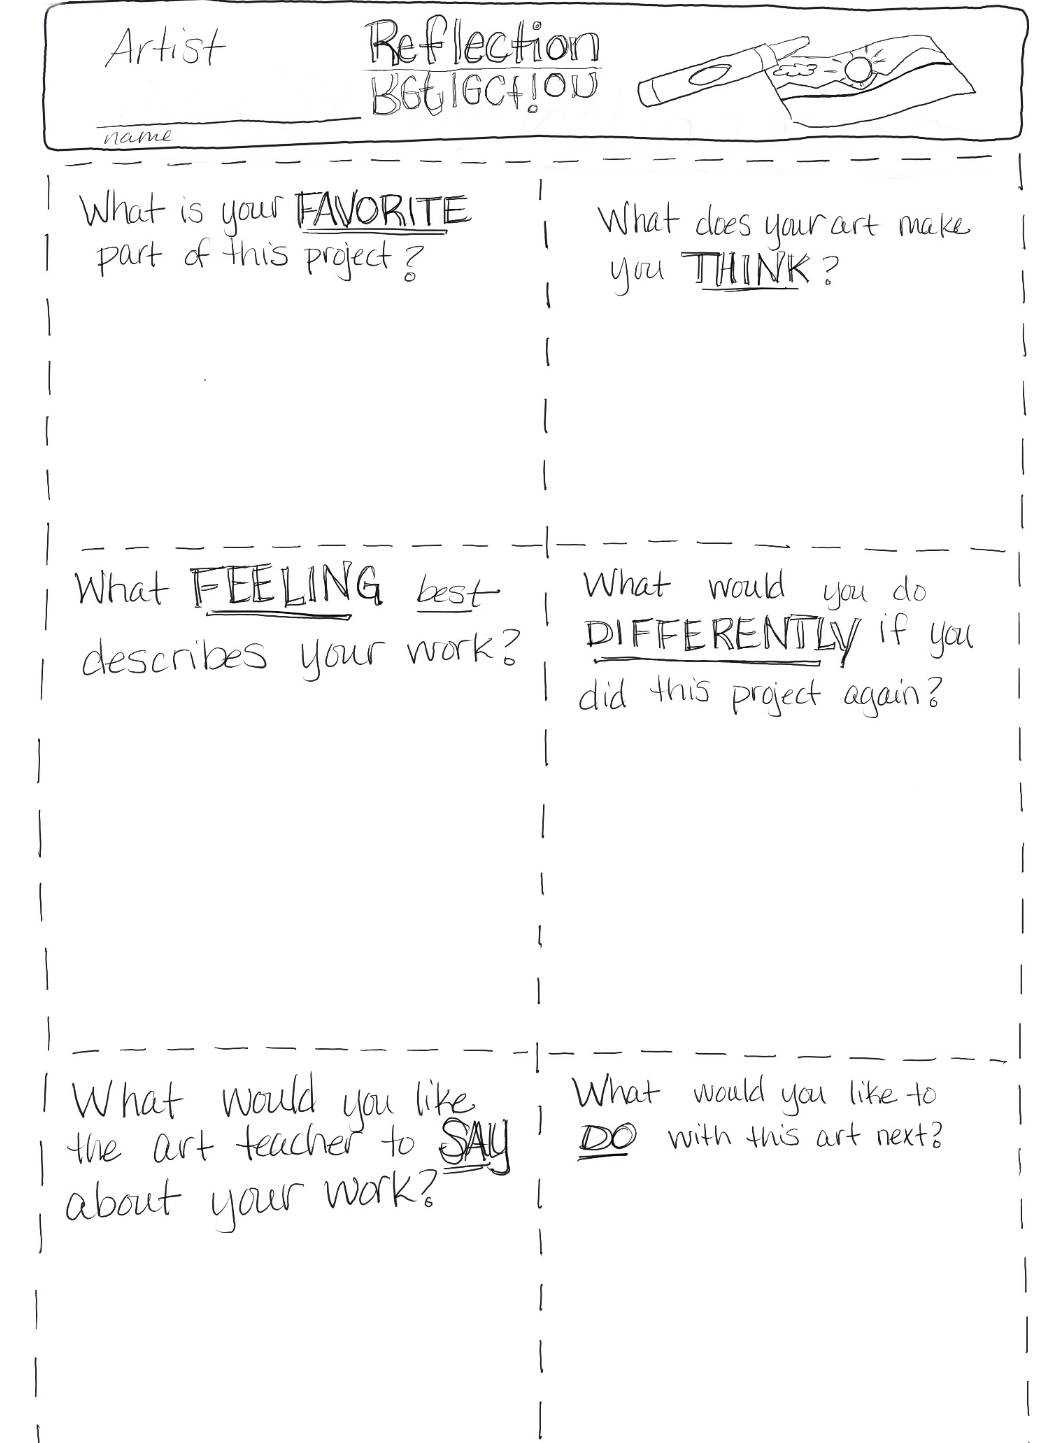 Artist
Reflection
Reflection
name
What is your FAVORITE
part of this project?
What does your art make
you THINK?
What FEELING best
describes your work?
What would you do
DIFFERENTLY if you
did this project again?
What would you like
the art teacher to SAY
about your work?
What would you like to
DO with this art next?